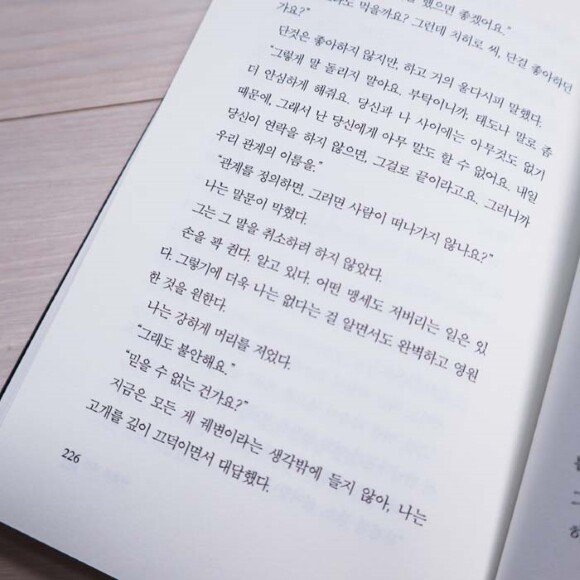 했으면 좋겠어요."
먹을까요? 그런데 치히로 씨, 단걸 좋아하던
가요?"
단것은 좋아하지 않지만, 하고 거의 울다시피 말했다.
"그렇게 말 돌리지 말아요. 부탁이니까, 태도나 말로 좀
더 안심하게 해줘요. 당신과 나 사이에는 아무것도 없기
때문에, 그래서 난 당신에게 아무 말도 할 수 없어요. 내일
당신이 연락을 하지 않으면, 그걸로 끝이라고요. 그러니까
우리 관계의 이름을."
"관계를 정의하면, 그러면 사람이 떠나가지 않나요?"
나는 말문이 막혔다.
그는 그 말을 취소하려 하지 않았다.
손을 꽉 쥔다. 알고 있다. 어떤 맹세도 저버리는 일은 있
다. 그렇기에 더욱 나는 없다는 걸 알면서도 완벽하고 영원
한 것을 원한다.
나는 강하게 머리를 저었다.
"그래도 불안해요."
"믿을 수 없는 건가요?"
지금은 모든 게 궤변이라는 생각밖에 들지 않아, 나는
고개를 깊이 끄덕이면서 대답했다.
226